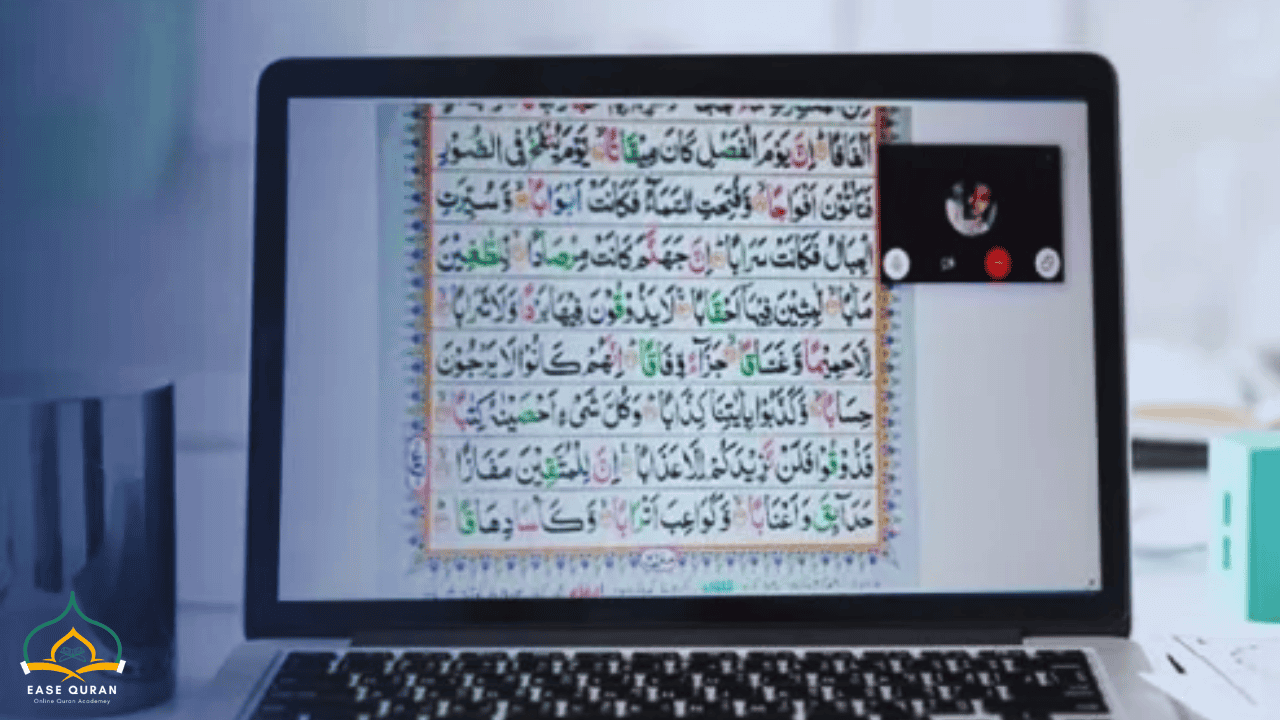 اَلْفَافًا اِنَّ يَوْمَ الْفَصْلِ كَانَ مِيْقَاتًا يَّوْمَ يُنْفَخُ فِى الصُّوْرِ
فَتَاْتُوْنَ اَفْوَاجًا وَّفُتِحَتِ السَّمَآءُ فَكَانَتْ اَبْوَابًا وَّ سُيِّرَتِ
الْجِبَالُ فَكَانَتْ سَرَابًا اِنَّ جَهَنَّمَ كَانَتْ مِرْصَادًا لِّلطّٰغِيْنَ
مَاٰبًا لّٰبِثِيْنَ فِيْهَاۤ اَحْقَابًا لَا يَذُوْقُوْنَ فِيْهَا بَرْدًا وَّلَا شَرَابًا
اِلَّا حَمِيْمًا وَّ غَسَّاقًا جَزَآءً وِّفَاقًا اِنَّهُمْ كَانُوْا لَا يَرْجُوْنَ
حِسَابًا وَّكَذَّبُوْا بِاٰيٰتِنَا كِذَّابًا وَكُلَّ شَىْءٍ اَحْصَيْنٰهُ كِتٰبًا
فَذُوْقُوْا فَلَنْ نَّزِيْدَكُمْ اِلَّا عَذَابًا اِنَّ لِلْمُتَّقِيْنَ مَفَازًا
حَدَآئِقَ وَاَعْنَابًا وَّكَوَاعِبَ اَتْرَابًا وَّكَاْسًا دِهَاقًا
EASE QURAN
Online Quran Academey